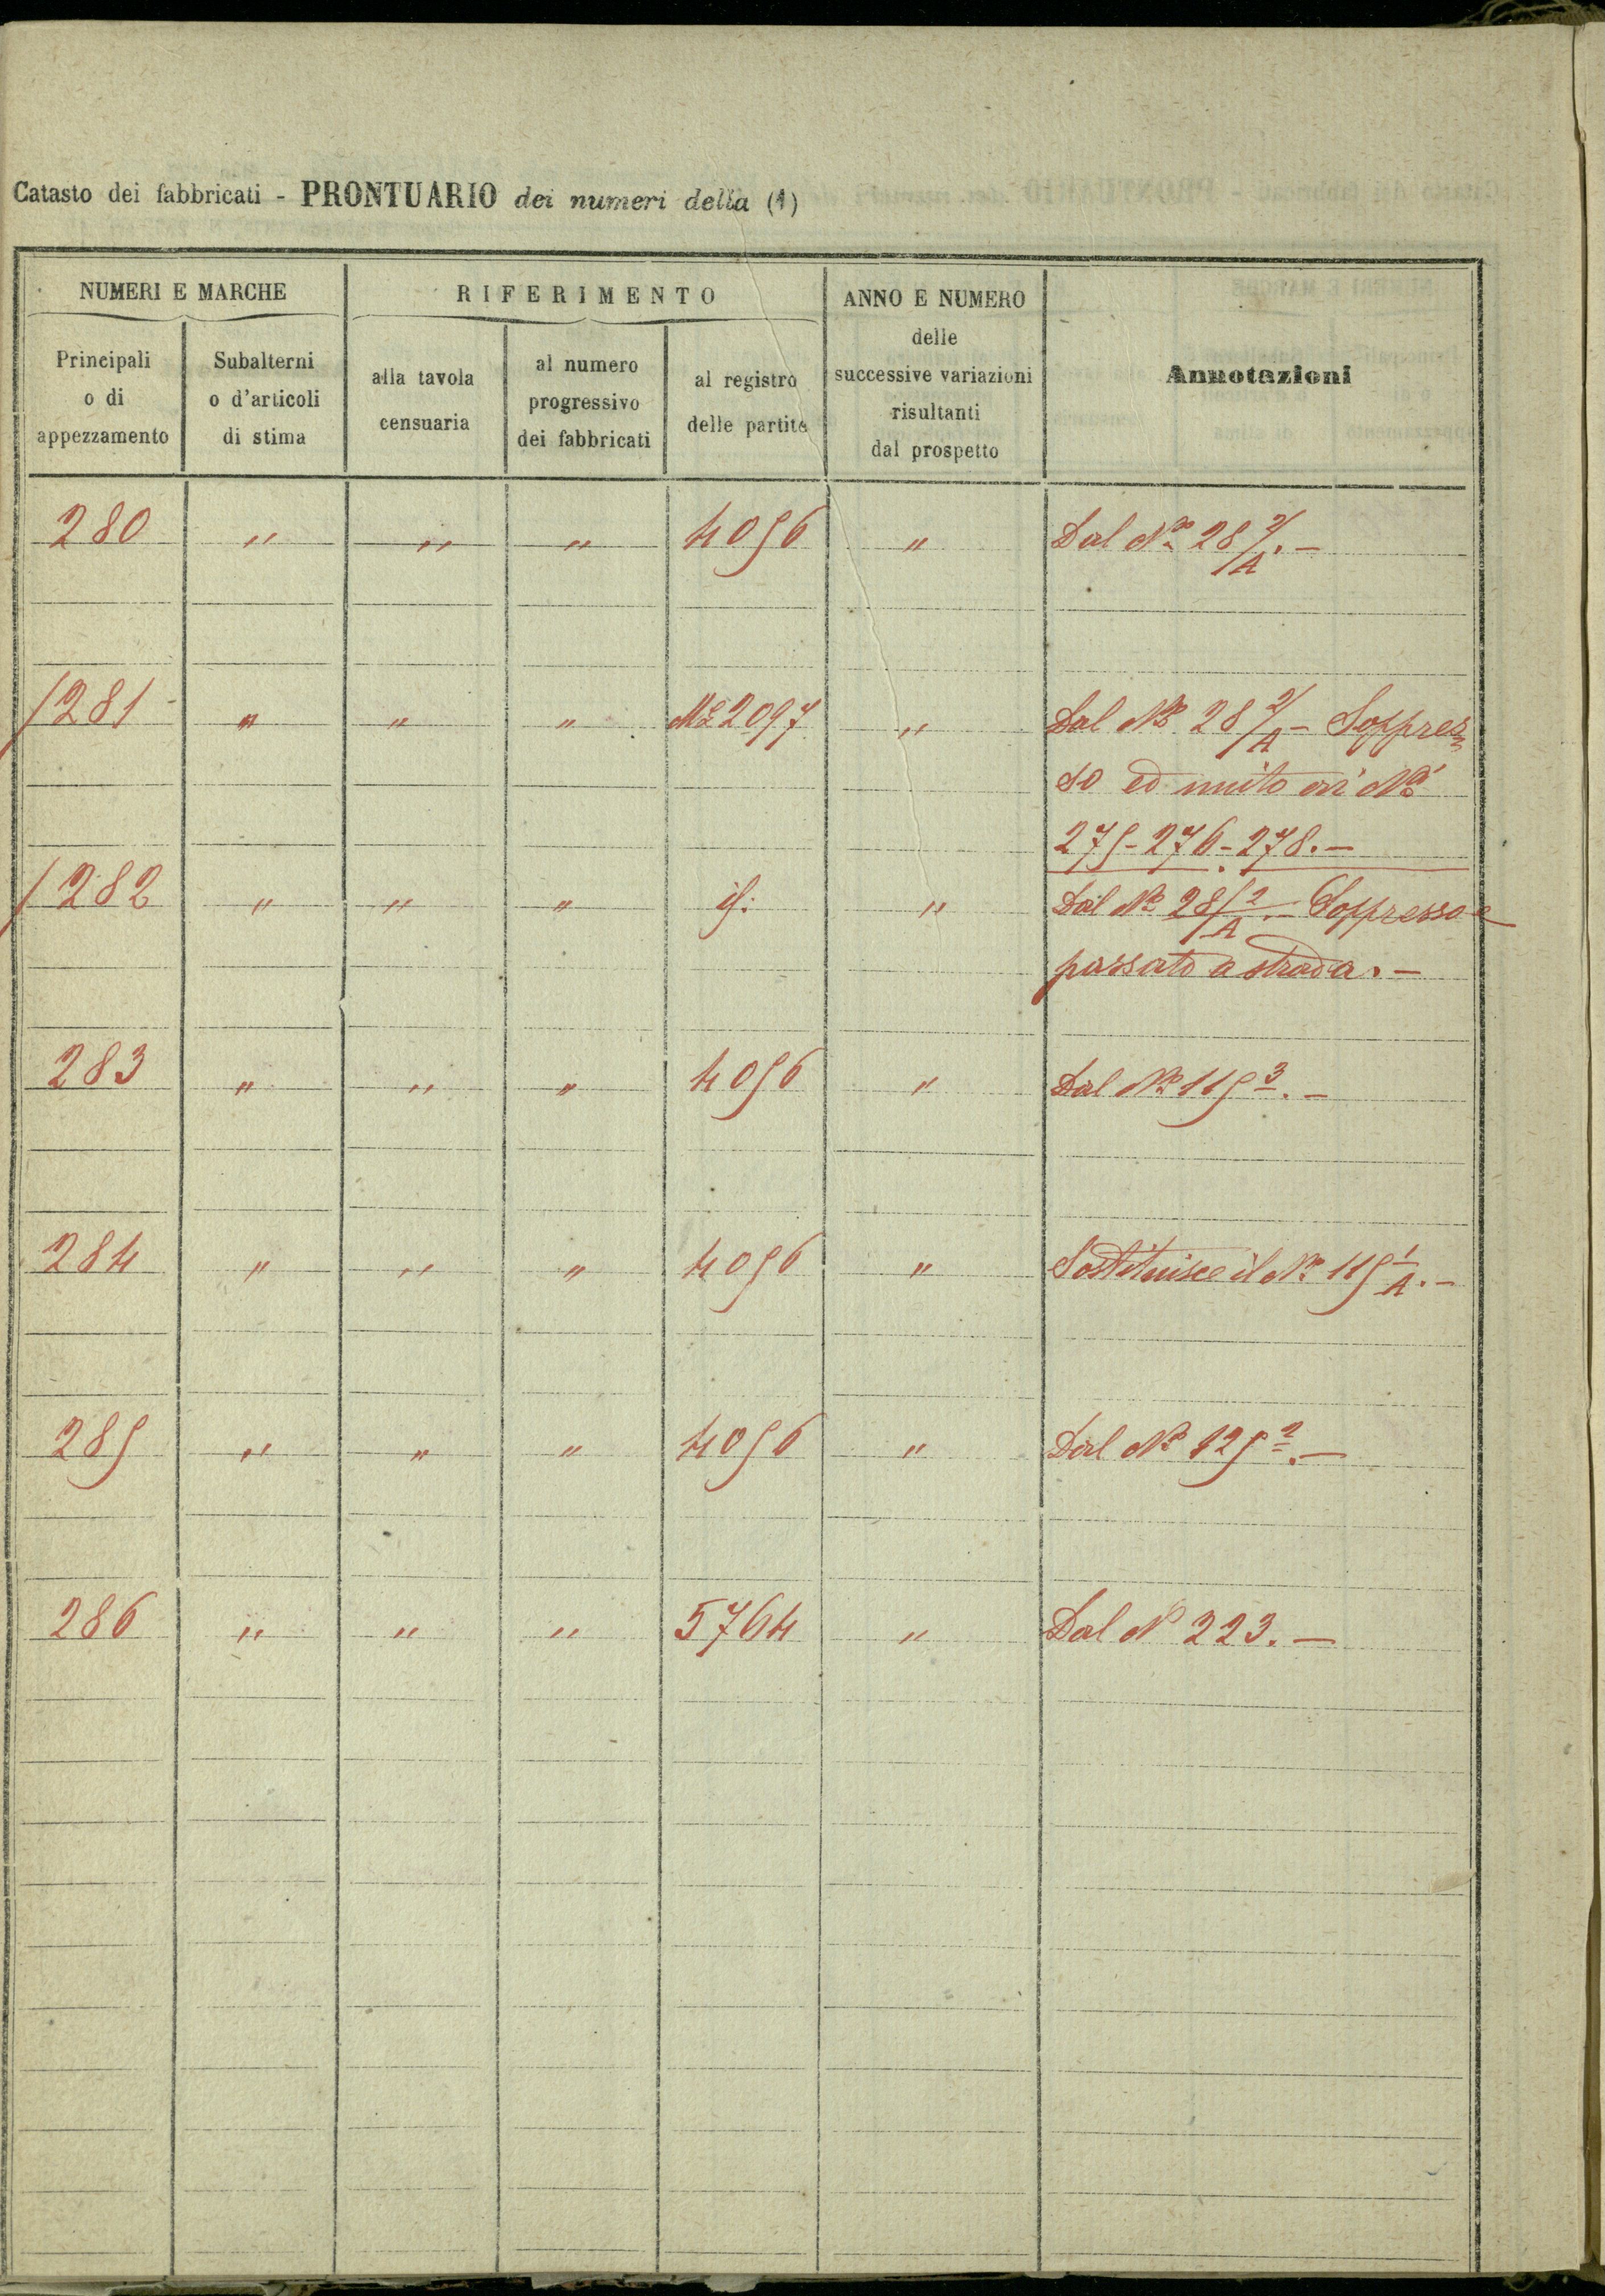 Catasto dei fabbricati - PRONTUARIO dei numeri della (1)
NUMERI E MARCHE
RIFERIMENTO
ANNO E NUMERO
delle
successive variazioni
risultanti
dal prospetto
Annotazioni
Principali
o di
appezzamento
Subalterni
o d'articoli
di stima
alla tavola
censuaria
al numero
progressivo
dei fabbricati
al registro
delle partite
280 " " " 4056 " Dal No. 28 2/A. —
281 " " " 2097 " Dal No. 28 2/A — Soppres=
so ed unito ai Ni
275 - 276 - 278. —
282 " " " " Dal No. 28 2/A. — Soppresso e
passato a strada. —
283 " " " 4056 " Dal No. 115 3. —
284 " " " 4056 " Sostituisce il No. 115 1/A. —
285 " " " 4056 " Dal No. 125 2. —
286 " " " 5764 " Dal No 223. —